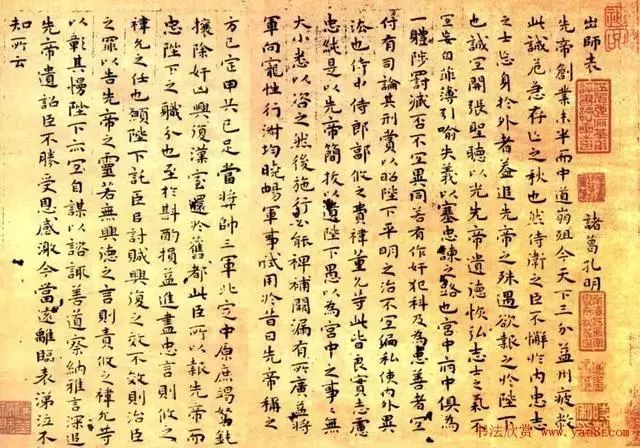 出師表 諸葛孔明
先帝創業未半而中道崩殂今天下三分益州疲敝
此誠危急存亡之秋也然侍衛之臣不懈於內忠志
之士忘身於外者蓋追先帝之殊遇欲報之於陛下
也誠宜開張聖聽以光先帝遺德恢弘志士之氣不
宜妄自菲薄引喻失義以塞忠諫之路也宮中府中俱為
一體陟罰臧否不宜異同若有作奸犯科及為忠善者宜
付有司論其刑賞以昭陛下平明之治不宜偏私使內外異
法也侍中侍郎郭攸之費禕董允等此皆良實志慮
忠純是以先帝簡拔以遺陛下愚以為宮中之事事無
大小悉以咨之然後施行必能裨補闕漏有所廣益將
軍向寵性行淑均曉暢軍事試用於昔日先帝稱之
方已定甲兵已足當將帥三軍北定中原庶竭駑鈍
攘除奸凶興復漢室還於舊都此臣所以報先帝而
忠陛下之職分也至於斟酌損益進盡忠言則攸之
禕允之任也願陛下託臣以討賊興復之效不效則治臣
之罪以告先帝之靈若無興德之言則責攸之禕允等
以彰其慢陛下亦宜自謀以諮諏善道察納雅言深追
先帝遺詔臣不勝受恩感激今當遠離臨表涕泣不
知所云
书法欣赏 www.yac8.com